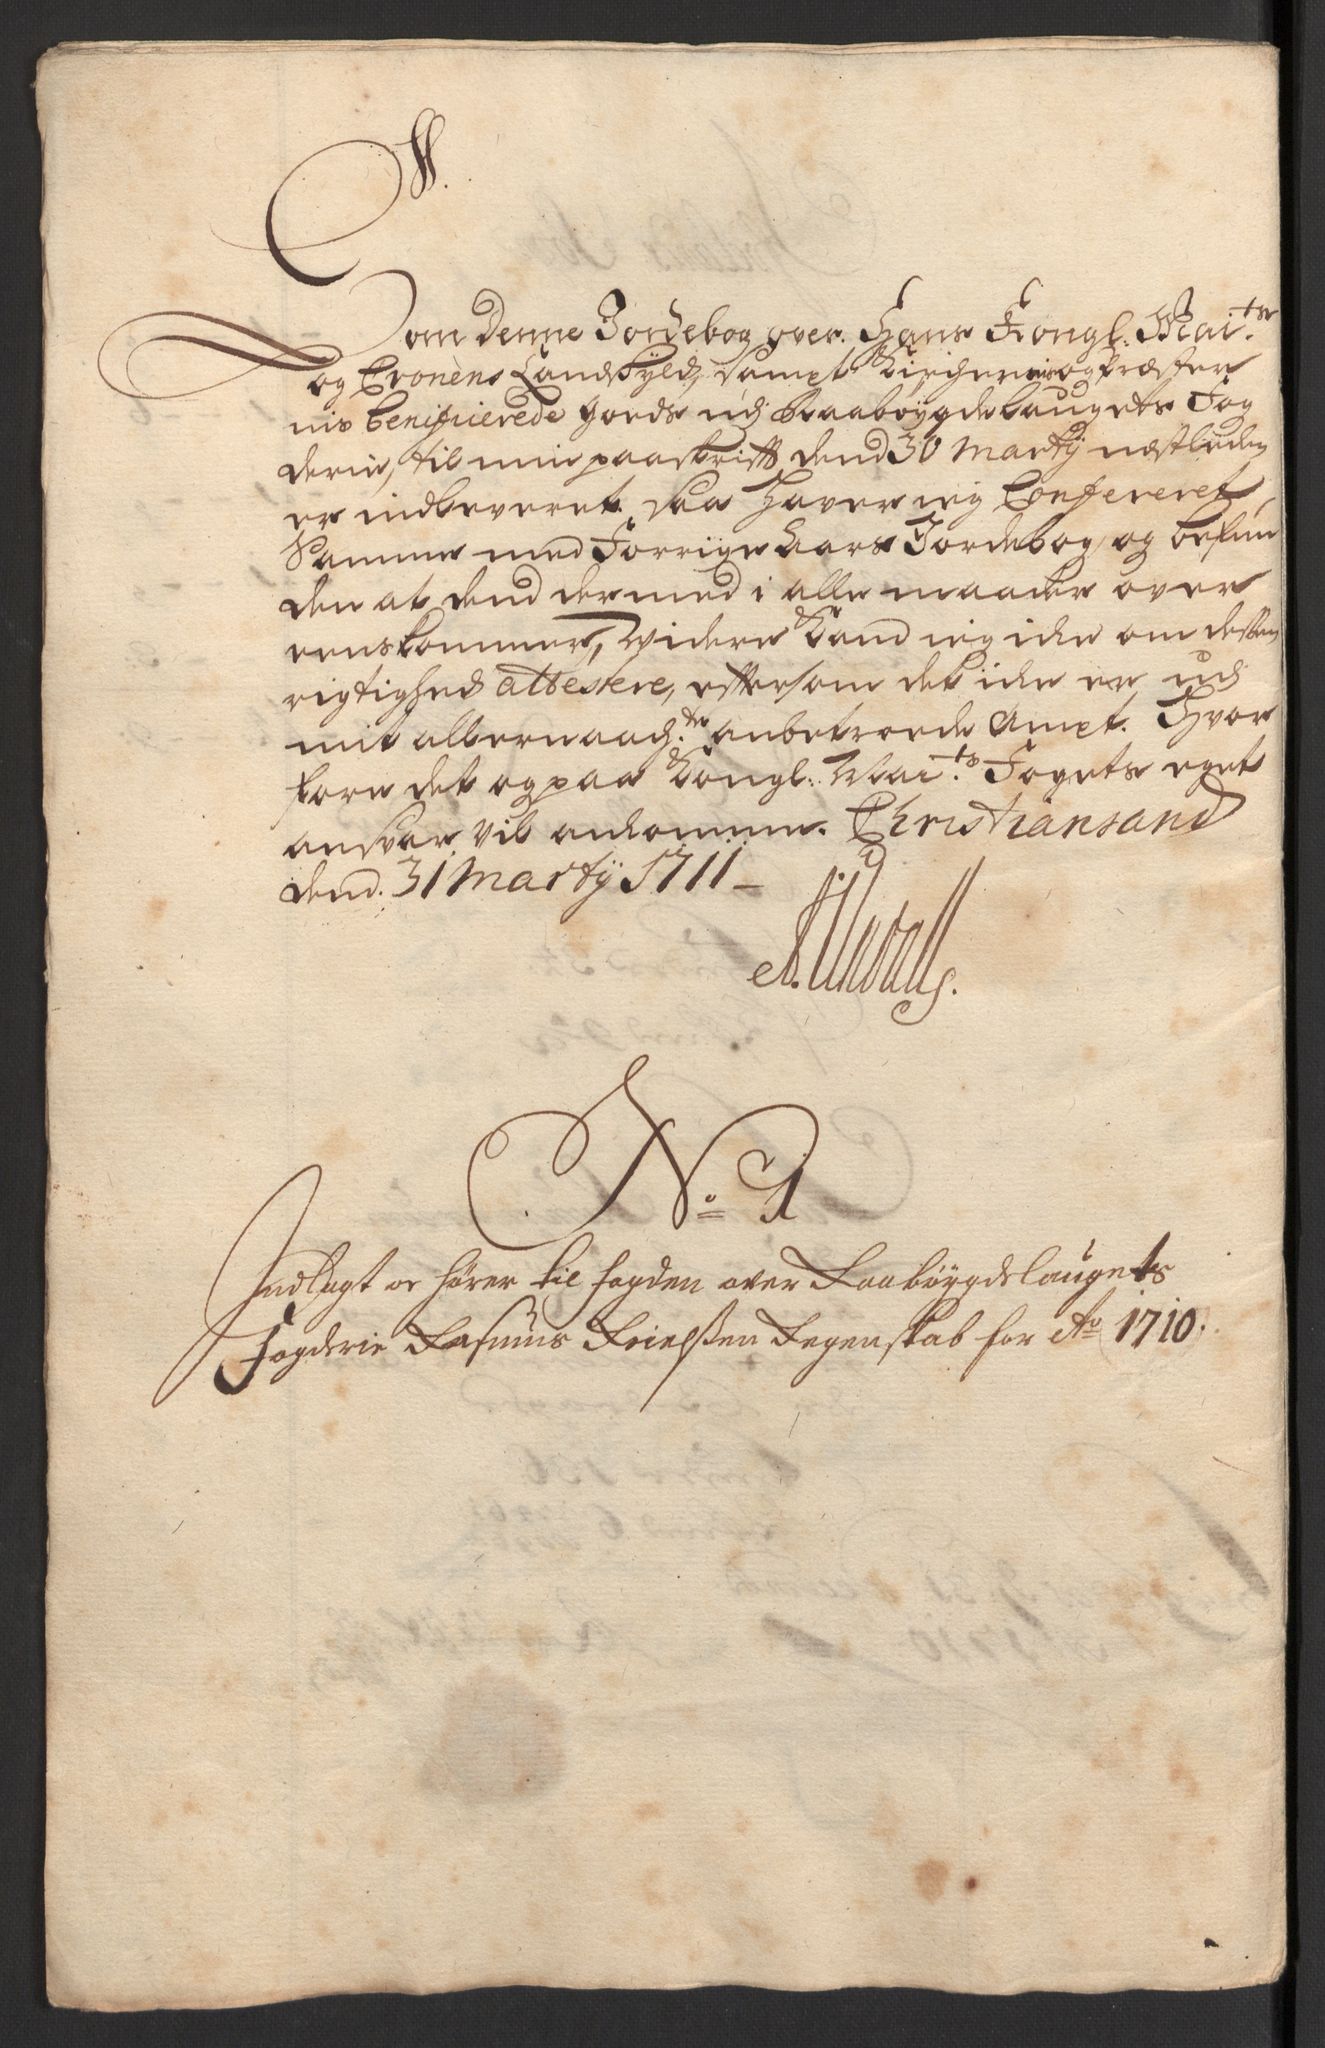 Som Denne Jordebog over. Hans Kongl: Maits
og Cronens Landskyld, sampt Kirchernis og Præster
nis benificierede Goeds udj Raabøygdelaugets Fog
derie, til min paaskrifft dend 30 Martij næstleden
er indleveret. Saa haver ieg Confereret
Samme med Forrige Aars Jordebog, og befun
den at dend dermed i alle maader over
eenskommer, Widere kand ieg iche om dessen
rigtighed attestere, efftersom det iche er, udj
mit allernaadh:te anbetroede Ampt. Hvor
fore det og paa Kongl: Maits Fogets eget
ansvar vil ankomme. Christiansand
dend. 31 Martij 1711
No 1
Indlagt oc hører til fogden over Raabøygdelaugets
Fogderie Rasmus Krielssen Regenskab for Ao 1710.